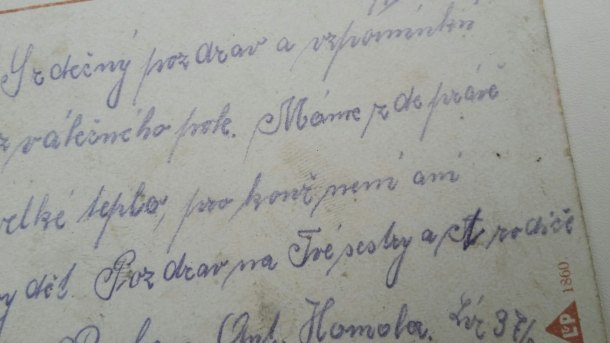 Srdečný pozdrav a vzpomínků
z válečného pole. Máme zde právě
velké teplo, pro koně není ani
děl. Pozdrav na Tvé sestry a rodiče
Ant. Homola.
1860